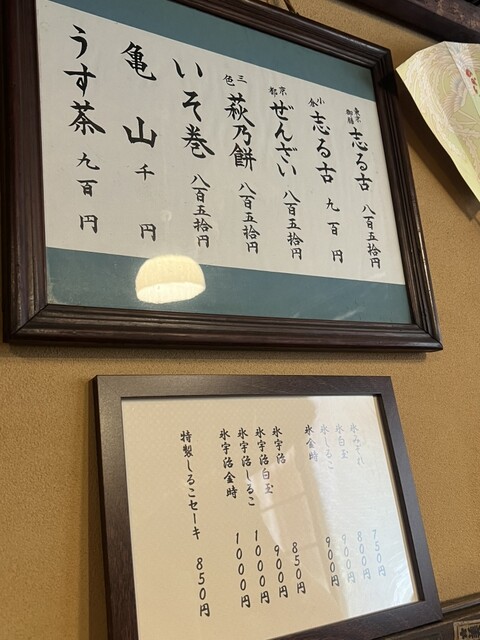 東京
御膳
志る古 八百五拾円
小倉
志る古 九百円
京都
ぜんざい 八百五拾円
三色
萩乃餅 八百五拾円
いそ巻 八百五拾円
亀山 千円
うす茶 九百円
氷みぞれ 750円
氷白玉 800円
氷しるこ 900円
氷金時 900円
氷宇治 850円
氷宇治白玉 900円
氷宇治しるこ 1000円
氷宇治金時 1000円
特製しるこセーキ 850円